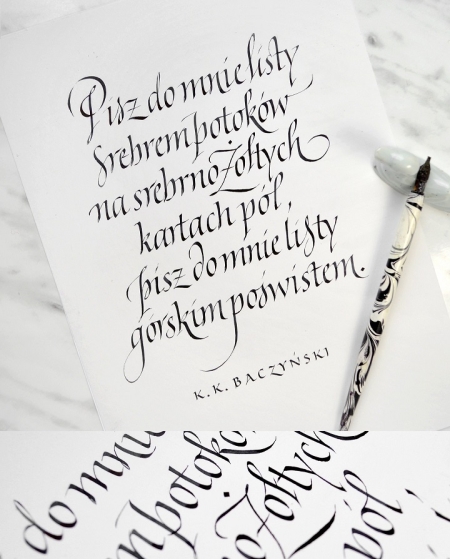 Pisz do mnie listy
srebrem potoków
na srebrno żółtych
kartach pól,
pisz do mnie listy
górskim poświstem.
K. K. BACZYŃSKI
do mnie
em potoków
no żółtych
pól